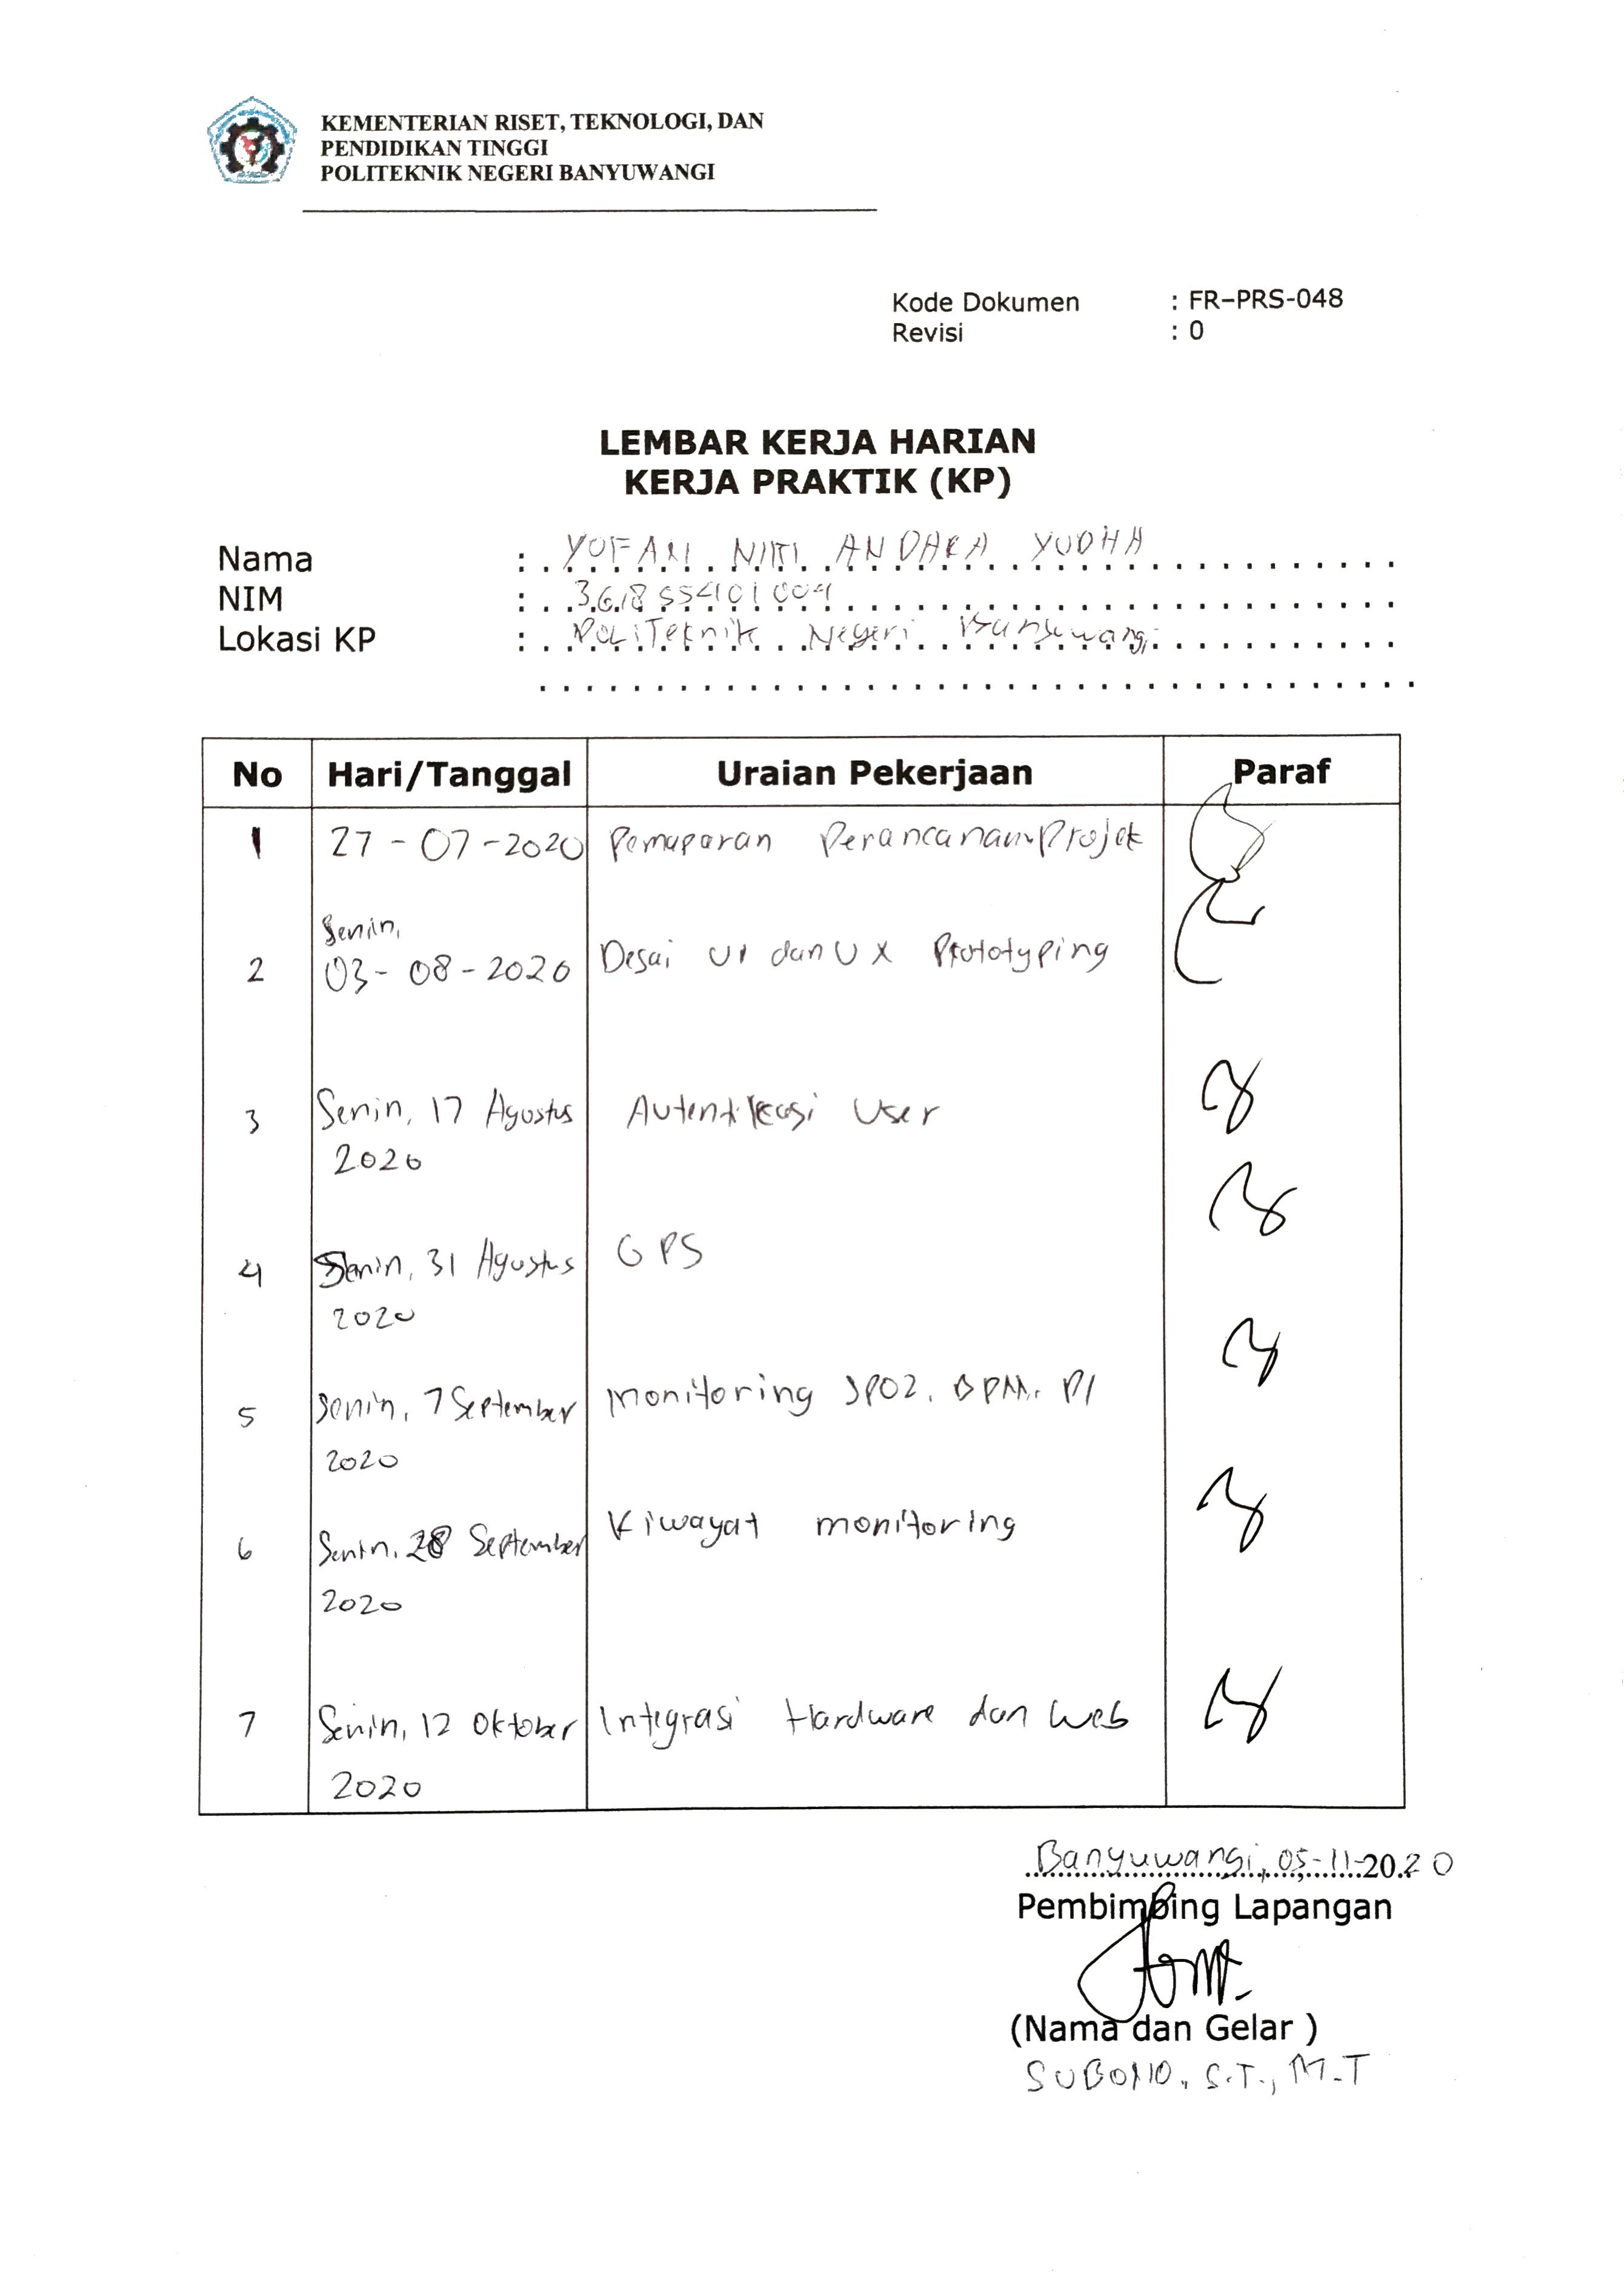 KEMENTERIAN RISET, TEKNOLOGI, DAN
PENDIDIKAN TINGGI
POLITEKNIK NEGERI BANYUWANGI
Kode Dokumen : FR-PRS-048
Revisi : 0
LEMBAR KERJA HARIAN
KERJA PRAKTIK (KP)
Nama : YOFAN ANDHKA YUDHA
NIM : 361855401004
Lokasi KP : Politeknik Negeri Banyuwangi
No Hari/Tanggal Uraian Pekerjaan Paraf
1 27-07-2020 Pemaparan Perancanaan Projek
Senin,
2 03-08-2020 Desai UI dan UX Prototyping
3 Senin, 17 Agustus Autentikasi User
2020
4 Senin, 31 Agustus GPS
2020
5 Senin, 7 September monitoring SPO2, BPM, PI
2020
6 Senin, 28 September Riwayat monitoring
2020
7 Senin, 12 Oktober Integrasi Hardware dan Web
2020
Banyuwangi, 05-11-2020
Pembimbing Lapangan
(Nama dan Gelar )
SUBONO, S.T., M.T